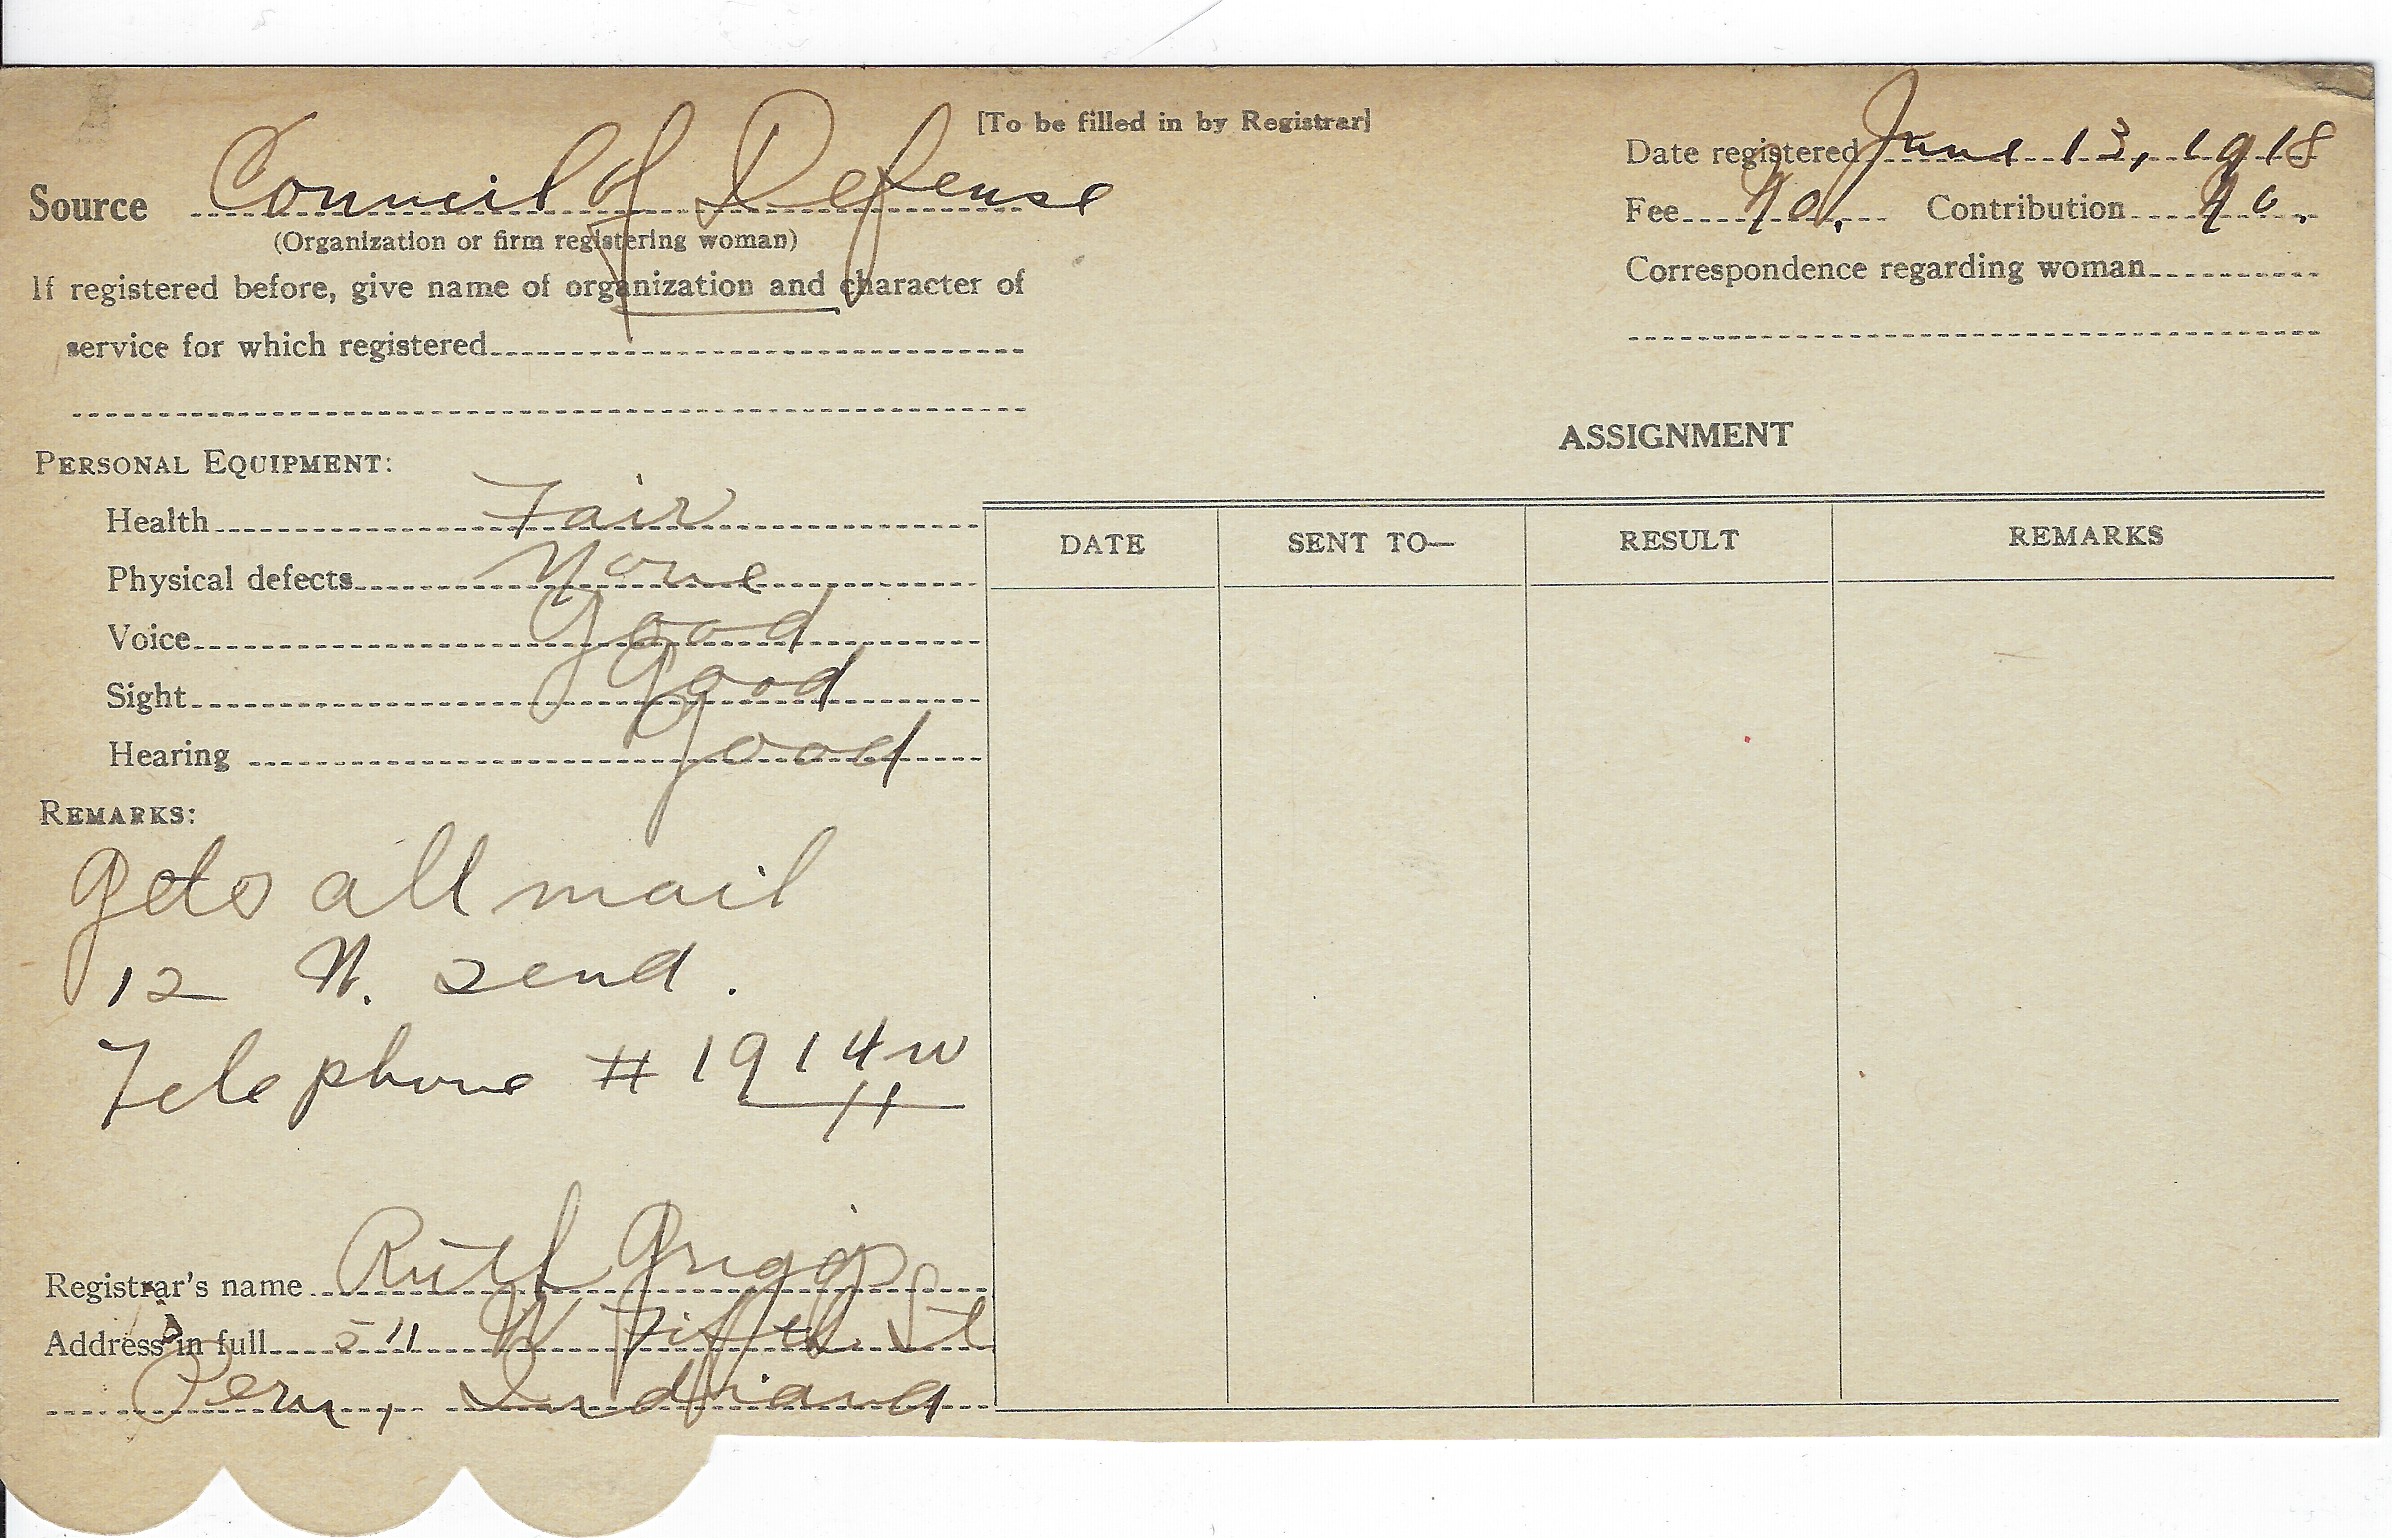 [To be filled in by Registrar]
Source Council of Defense
(Organization or firm registering woman)
If registered before, give name of organization and character of
service for which registered
Date registered June 13, 1918
Fee No. Contribution No.
Correspondence regarding woman
PERSONAL EQUIPMENT:
Health Fair
Physical defects None
Voice Good
Sight Good
Hearing Good
REMARKS:
Gets all mail
12 N. 2end.
Telephone # 1914W
Registrar's name Ruth Griggs
Address in full 511 W Fifth St
Peru, Indiana
ASSIGNMENT
DATE SENT TO— RESULT REMARKS